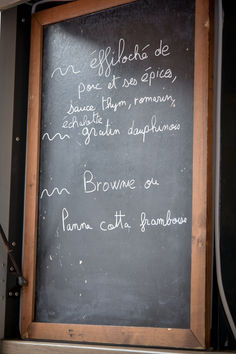 ~ effiloché de
porc et ses épices,
sauce thym, romarin,
échalotte
~ gratin dauphinois
~ Brownie ou
Panna cotta framboise